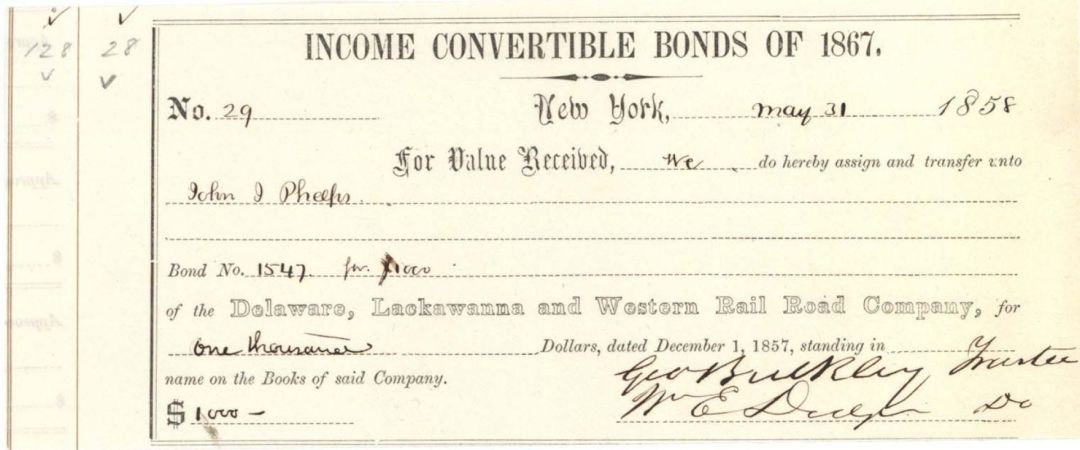 128
28
INCOME CONVERTIBLE BONDS OF 1867.
No. 29 New York, May 31 1858
For Value Received, We do hereby assign and transfer unto
John J Phelps
Bond No. 1547. for $1000
of the Delaware, Lackawanna and Western Rail Road Company, for
One thousand Dollars, dated December 1, 1857, standing in
name on the Books of said Company.
Geo Bulkley Trustee
$1000 — Wm E Dodge Do